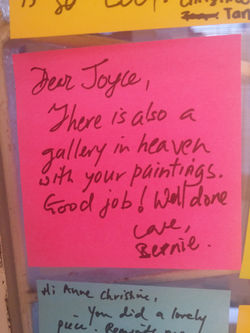 Dear Joyce,
There is also a
gallery in heaven
with your paintings.
Good job! Well done
Love,
Bernie.
Hi Anne Christine,
You did a lovely
piece.